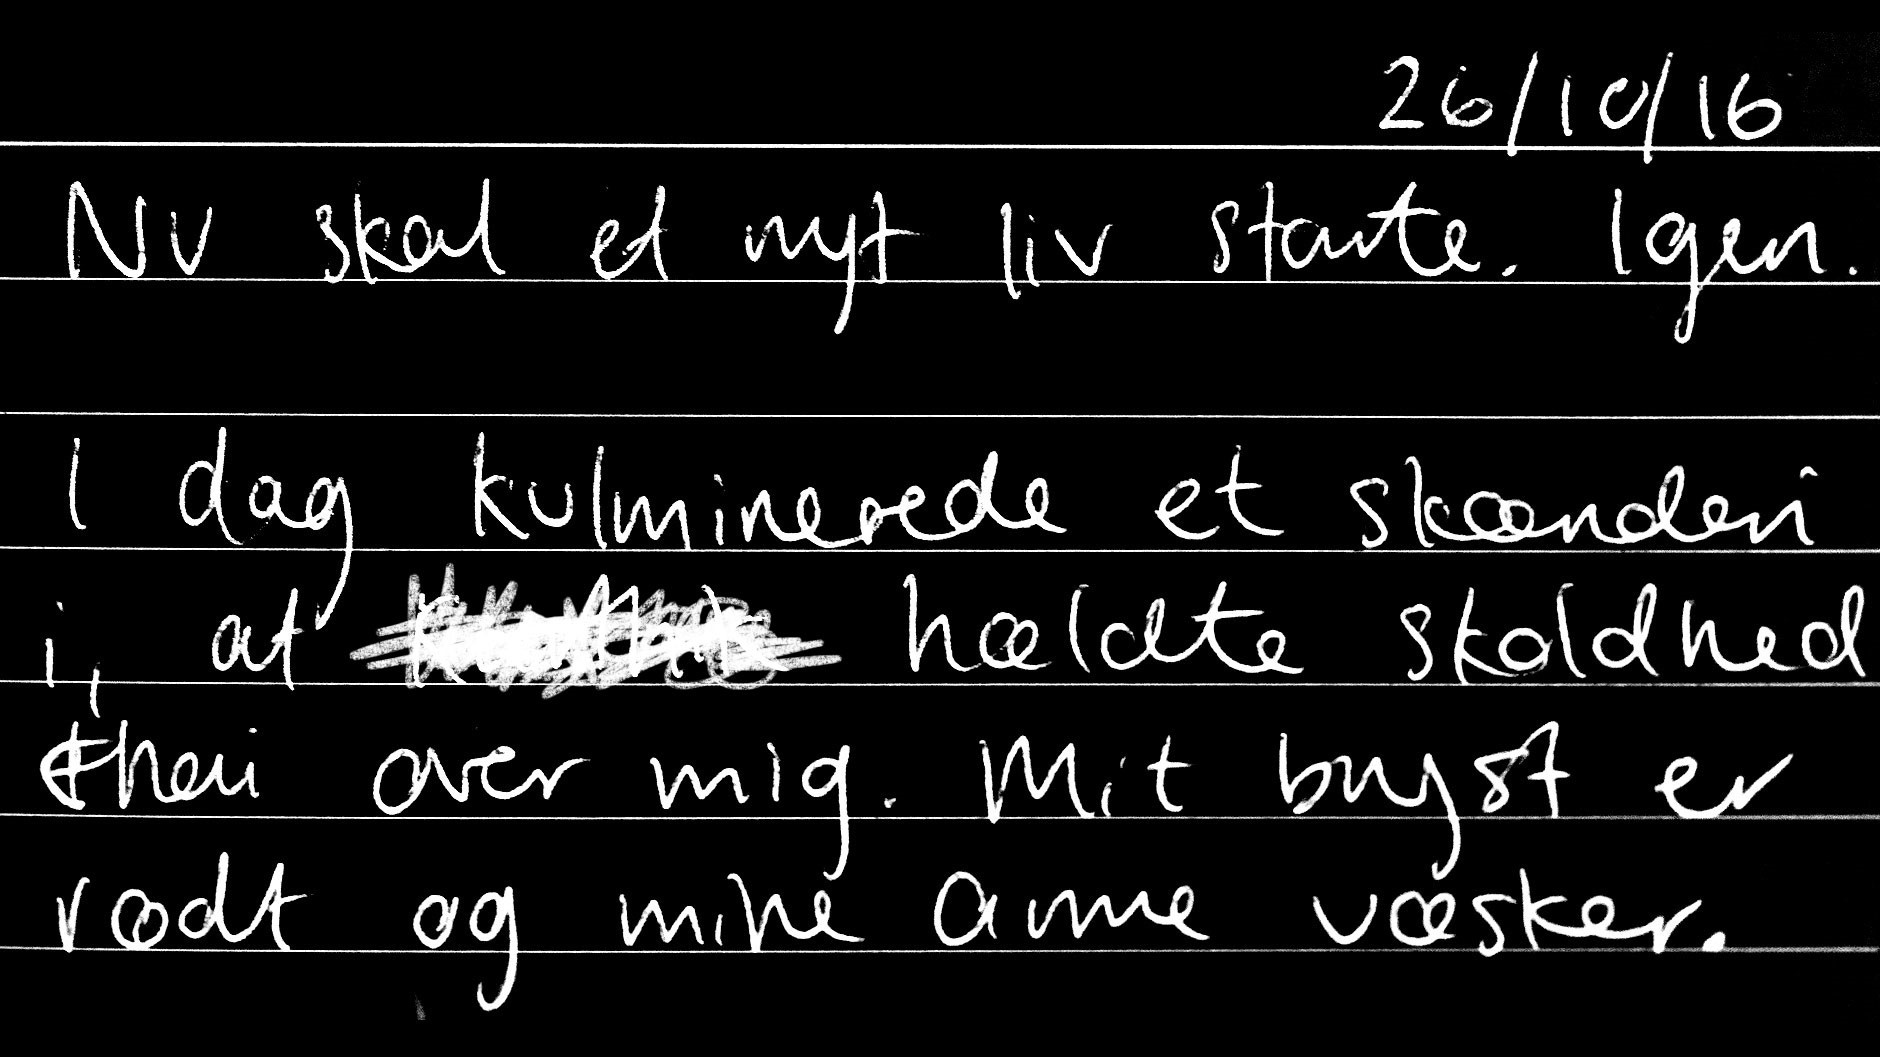 26/10/16
Nu skal et nyt liv starte. Igen.
I dag kulminerede et skænderi
i, at hældte skoldhed
the i over mig. Mit bryst er
rødt og mine arme væsker.